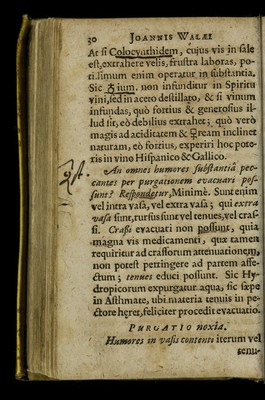 30 JOANNIS WALÆI
At si Colocynthidem, cujus vis in sale
est, extrahere velis, frustra laboras, po-
tissimum enim operatur in substantia.
Sic ium. non infunditur in Spiritu
vini, sed in aceto destillato, & si vinum
infundas, quò fortius & generosius il-
lud sit, eò debilius extrahet; quò verò
magis ad aciditatem & ♀ream inclinet
naturam, eò fortius, experiri hoc pote-
ris in vino Hispanico & Gallico.
An omnes humores substantiâ pec-
cantes per purgationem evacuari pos-
sunt? Respondetur, Minimè. Sunt enim
vel intra vasa, vel extra vasa; qui extra
vasa sunt, rursus sunt vel tenues, vel cras-
si. Crassi evacuari non possunt, quia
magna vis medicamenti, quæ tamen
requiritur ad crassorum attenuationem,
non potest pertingere ad partem affe-
ctum; tenues educi possunt. Sic Hy-
dropicorum expurgatur aqua, sic sæpe
in Asthmate, ubi materia tenuis in pe-
ctore hæret, feliciter procedit evacuatio.
PURGATIO noxia.
Humores in vasis contenti iterum vel